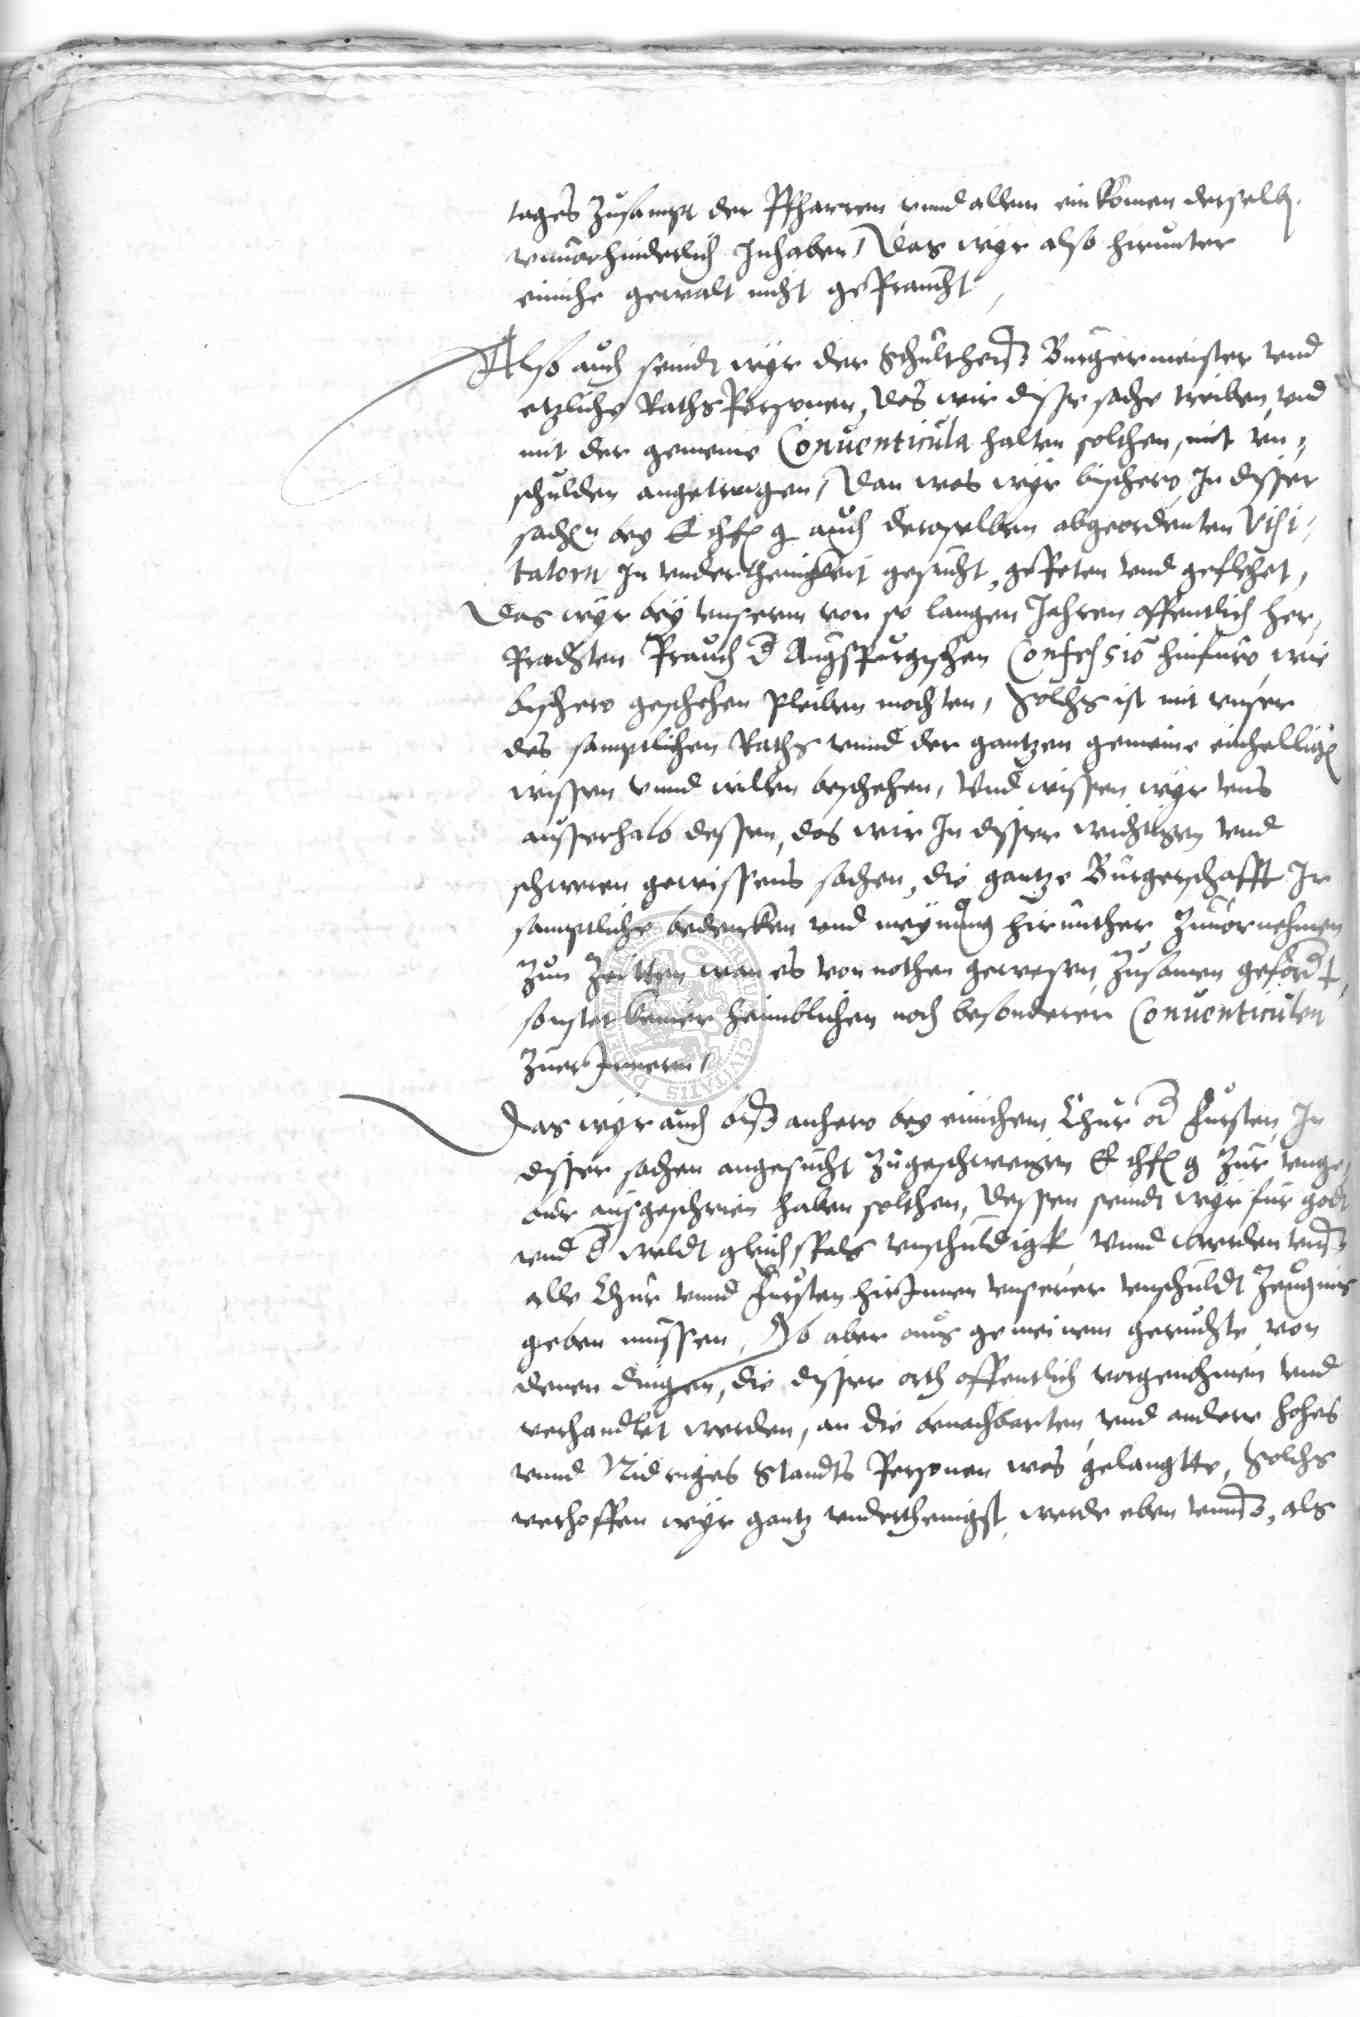 tages zusampt der Pfharren vnnd allem einkomen derselb.
vnuorhinderlich Inhaben, Das wyr also hirunter
einiche gewalt nicht gepraucht,
Also auch seindt wyr der Schultheiß Burgermeister vnd
etzliche RathsPersonen, das wir disse sache treiben, vnd
mit der gemeine Conuenticula halten solthen, mit vn=
schulden angetzogen, Dan was wyr bishero, In disser
sachen bey E chf g auch deroselben abgeordenten Visi=
tatorn In vnderthenigkeit gesucht, gepeten vnd geflehet,
Das wyr bey vnserm von so langen Jahren offentlich her=
prachten Prauch d Augspurgischen Confessio hinfuro, wie
bishero geschehen pleiben mochten, Solchs ist mit vnser
des samptlichen Raths vnnd der gantzen gemeine einhellige
wissen vnnd willen beschehen, Vnd wissen wyr vns
ausserhalb dessen, das wir In disser wichtigen vnd
schweren gewissens sachen, die gantze Burgerschafft Ir
samptliche bedencken vnd meynung hirunther zuuornehmen
zun Zeitten wan es von nothen gewesen, zusamen gefordt,
sonster keiner heimblichen noch besonderer Conuenticulen
zuerInnern,
Das wyr auch biß anhero bey einichem Chur od Fursten, In
disser sachen angesucht zugeschweigen E chf g zur vnge=
bur ausgeschrien haben solthen, dessen seindt wyr fur godt
vnd d weldt gleichfals vnschuldigk Vnnd werden vnß
alle Chur vnnd Fursten hirInnen vnserer vnschuldt Zeugnis
geben mussen, Ob aber aus gemeinem geruchte, von
denen dingen, die disser orth offentlich vorgenohmen vnd
verhandlet werden, an die benachbarten, vnd andere hohes
vnnd Nidriges Standts Personen was gelangtte, Solchs
verhoffen wyr gantz vnderthenigst, werde eben vnnß, als